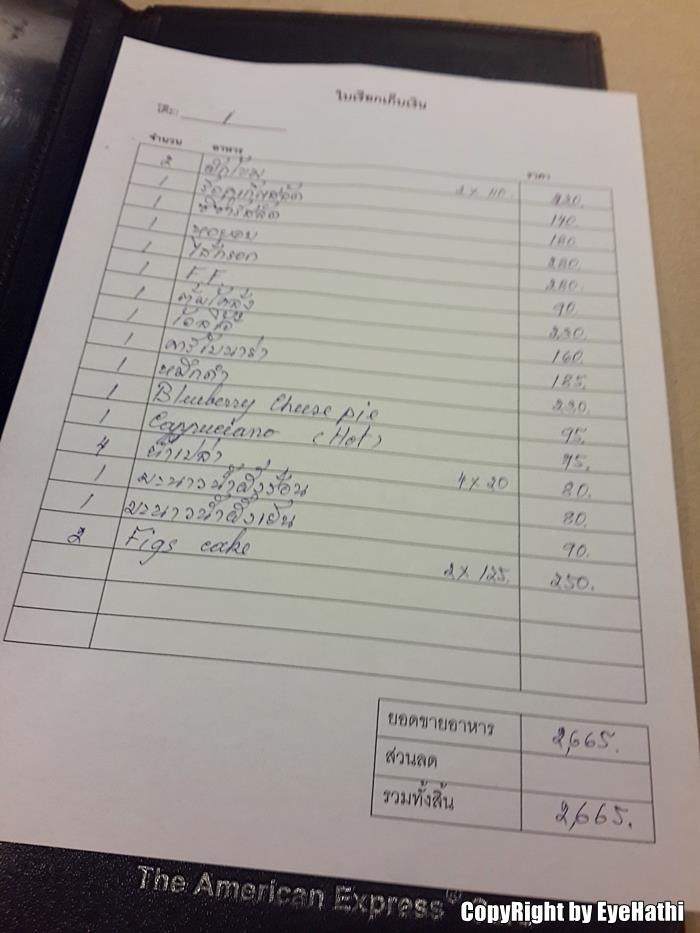 ใบเรียกเก็บเงิน
โต๊ะ: 1
จำนวน อาหาร ราคา
2 ผักโขม 2 x 110. 220.
1 140.
1 ซีซ่าร์สลัด 180.
1 หอยอบ 280.
1 ไส้กรอก 280.
1 F.F. 90.
1 220.
1 160.
1 คาโบนาร่า 185.
1 หมึกดำ 220.
1 Blueberry Cheese pie 95.
1 Cappuciano (Hot) 75.
4 น้ำเปล่า 4 x 20 80.
1 มะนาวน้ำผึ้งร้อน 80.
1 มะนาวน้ำผึ้งเย็น 90.
2 Figs cake 2 x 125. 250.
ยอดขายอาหาร 2,665.
ส่วนลด
รวมทั้งสิ้น 2,665.
The American Express®
CopyRight by EyeHathi